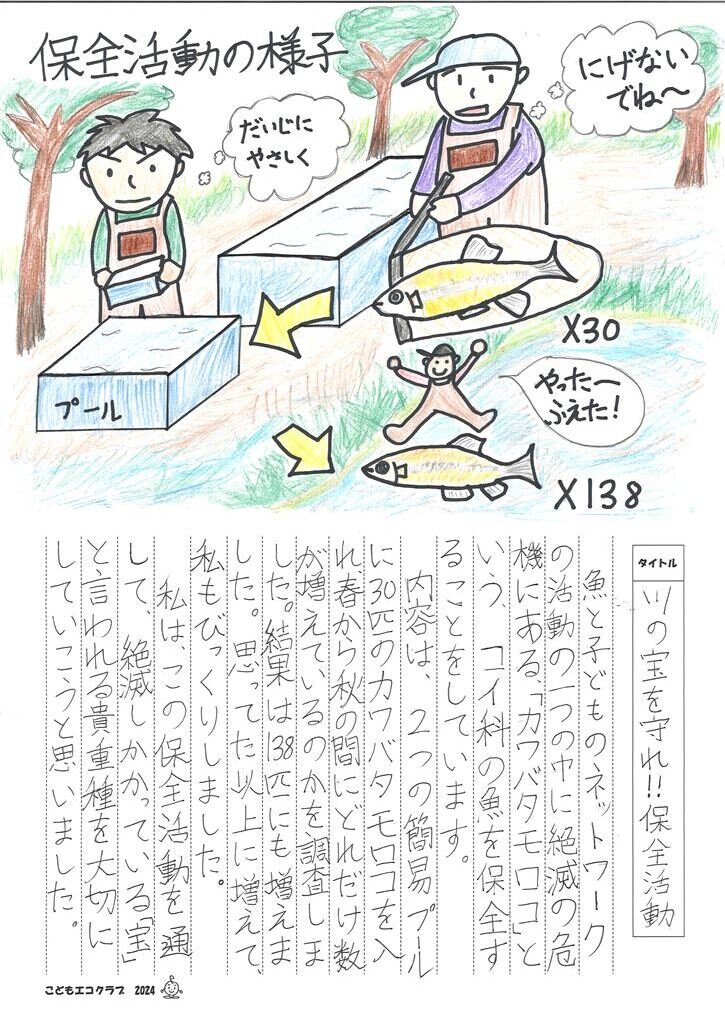 保全活動の様子
にげない
でね〜
だいじに
やさしく
X30
プール
やったー
ふえた!
X138
タイトル
川の宝を守れ!!保全活動
魚と子どものネットワーク
の活動の一つの中に絶滅の危
機にある、「カワバタモロコ」と
いう、コイ科の魚を保全す
ることをしています。
内容は、2つの簡易プール
に30匹のカワバタモロコを入
れ春から秋の間にどれだけ数
が増えているのかを調査しま
した。結果は138匹にも増えま
した。思ってた以上に増えて、
私もびっくりしました。
私は、この保全活動を通
して、絶滅しかかっている「宝」
と言われる貴重種を大切に
していこうと思いました。
こどもエコクラブ 2024